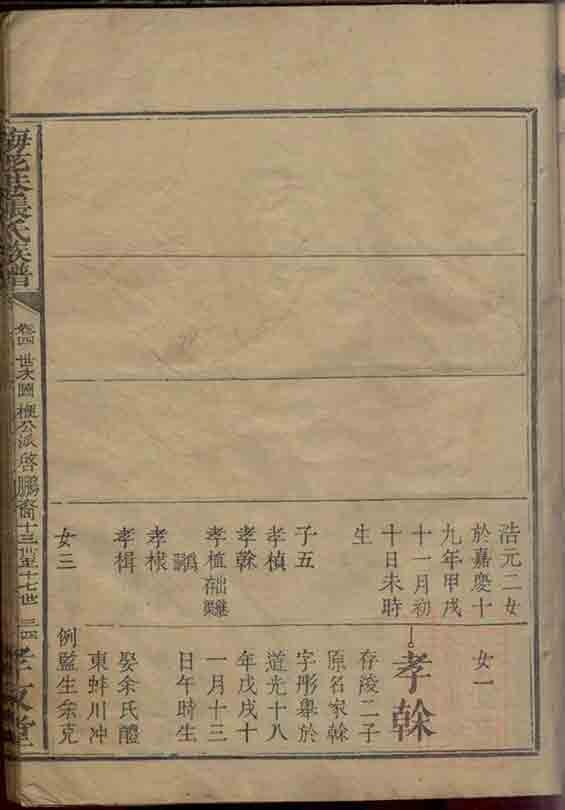 浩元二女
於嘉慶十
九年甲戌
十一月初
十日未時
生
子五
孝楨
孝榦
孝植出繼
孝根
孝楫
女三
女一
孝榦
存浚二子
原名家榦
字彤舉於
道光十八
年戊戌十
一月十三
日午時生
娶余氏醴
東蚌川冲
例監生余克
張氏族譜
卷四 世次圖 楩公派 啓鵬裔十三世至十七世
孝友堂